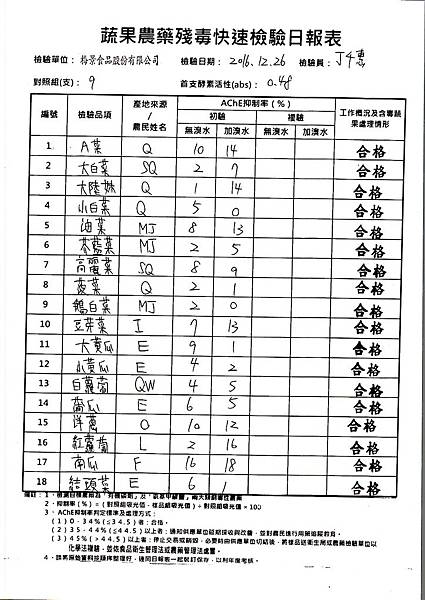 蔬果農藥殘毒快速檢驗日報表
檢驗單位： 裕景食品股份有限公司 檢驗日期： 2016.12.26 檢驗員：
對照組(支)： 9 首支酵素活性(abs)： 0.48
編號 檢驗品項 產地來源/農民姓名 AChE抑制率(%) 工作概況及含毒蔬果處理情形
初驗 複驗
無溴水 加溴水 無溴水 加溴水
1 A菜 Q 10 14 合格
2 大白菜 SQ 2 7 合格
3 大陸妹 Q 1 14 合格
4 小白菜 Q 5 0 合格
5 油菜 MJ 8 13 合格
6 芥藍菜 MJ 2 5 合格
7 高麗菜 SQ 8 9 合格
8 菠菜 Q 2 1 合格
9 鵝白菜 MJ 2 0 合格
10 豆芽菜 I 7 13 合格
11 大黃瓜 E 9 1 合格
12 小黃瓜 E 4 2 合格
13 白蘿蔔 QW 4 5 合格
14 扁瓜 E 6 5 合格
15 洋蔥 O 10 12 合格
16 紅蘿蔔 L 2 16 合格
17 南瓜 F 16 18 合格
18 結頭菜 E 6 1 合格
2、抑制率(%)＝(對照組吸光值－樣品組吸光值)÷對照組吸光值×100
3、AChE抑制率判定標準及處理方式：
(1) 0-34%(≦34.5)者：合格。
(2) 35-44%(≦44.5)以上者：通知供應單位延期採收與改善，並對農民進行用藥追蹤教育。
(3) 45%(>44.5)以上者：停止交易或銷毀，必要時由供應單位切結後，將樣品送衛生局或農藥檢驗單位以
化學法複驗，並依食品衛生管理法或農藥管理法處置。